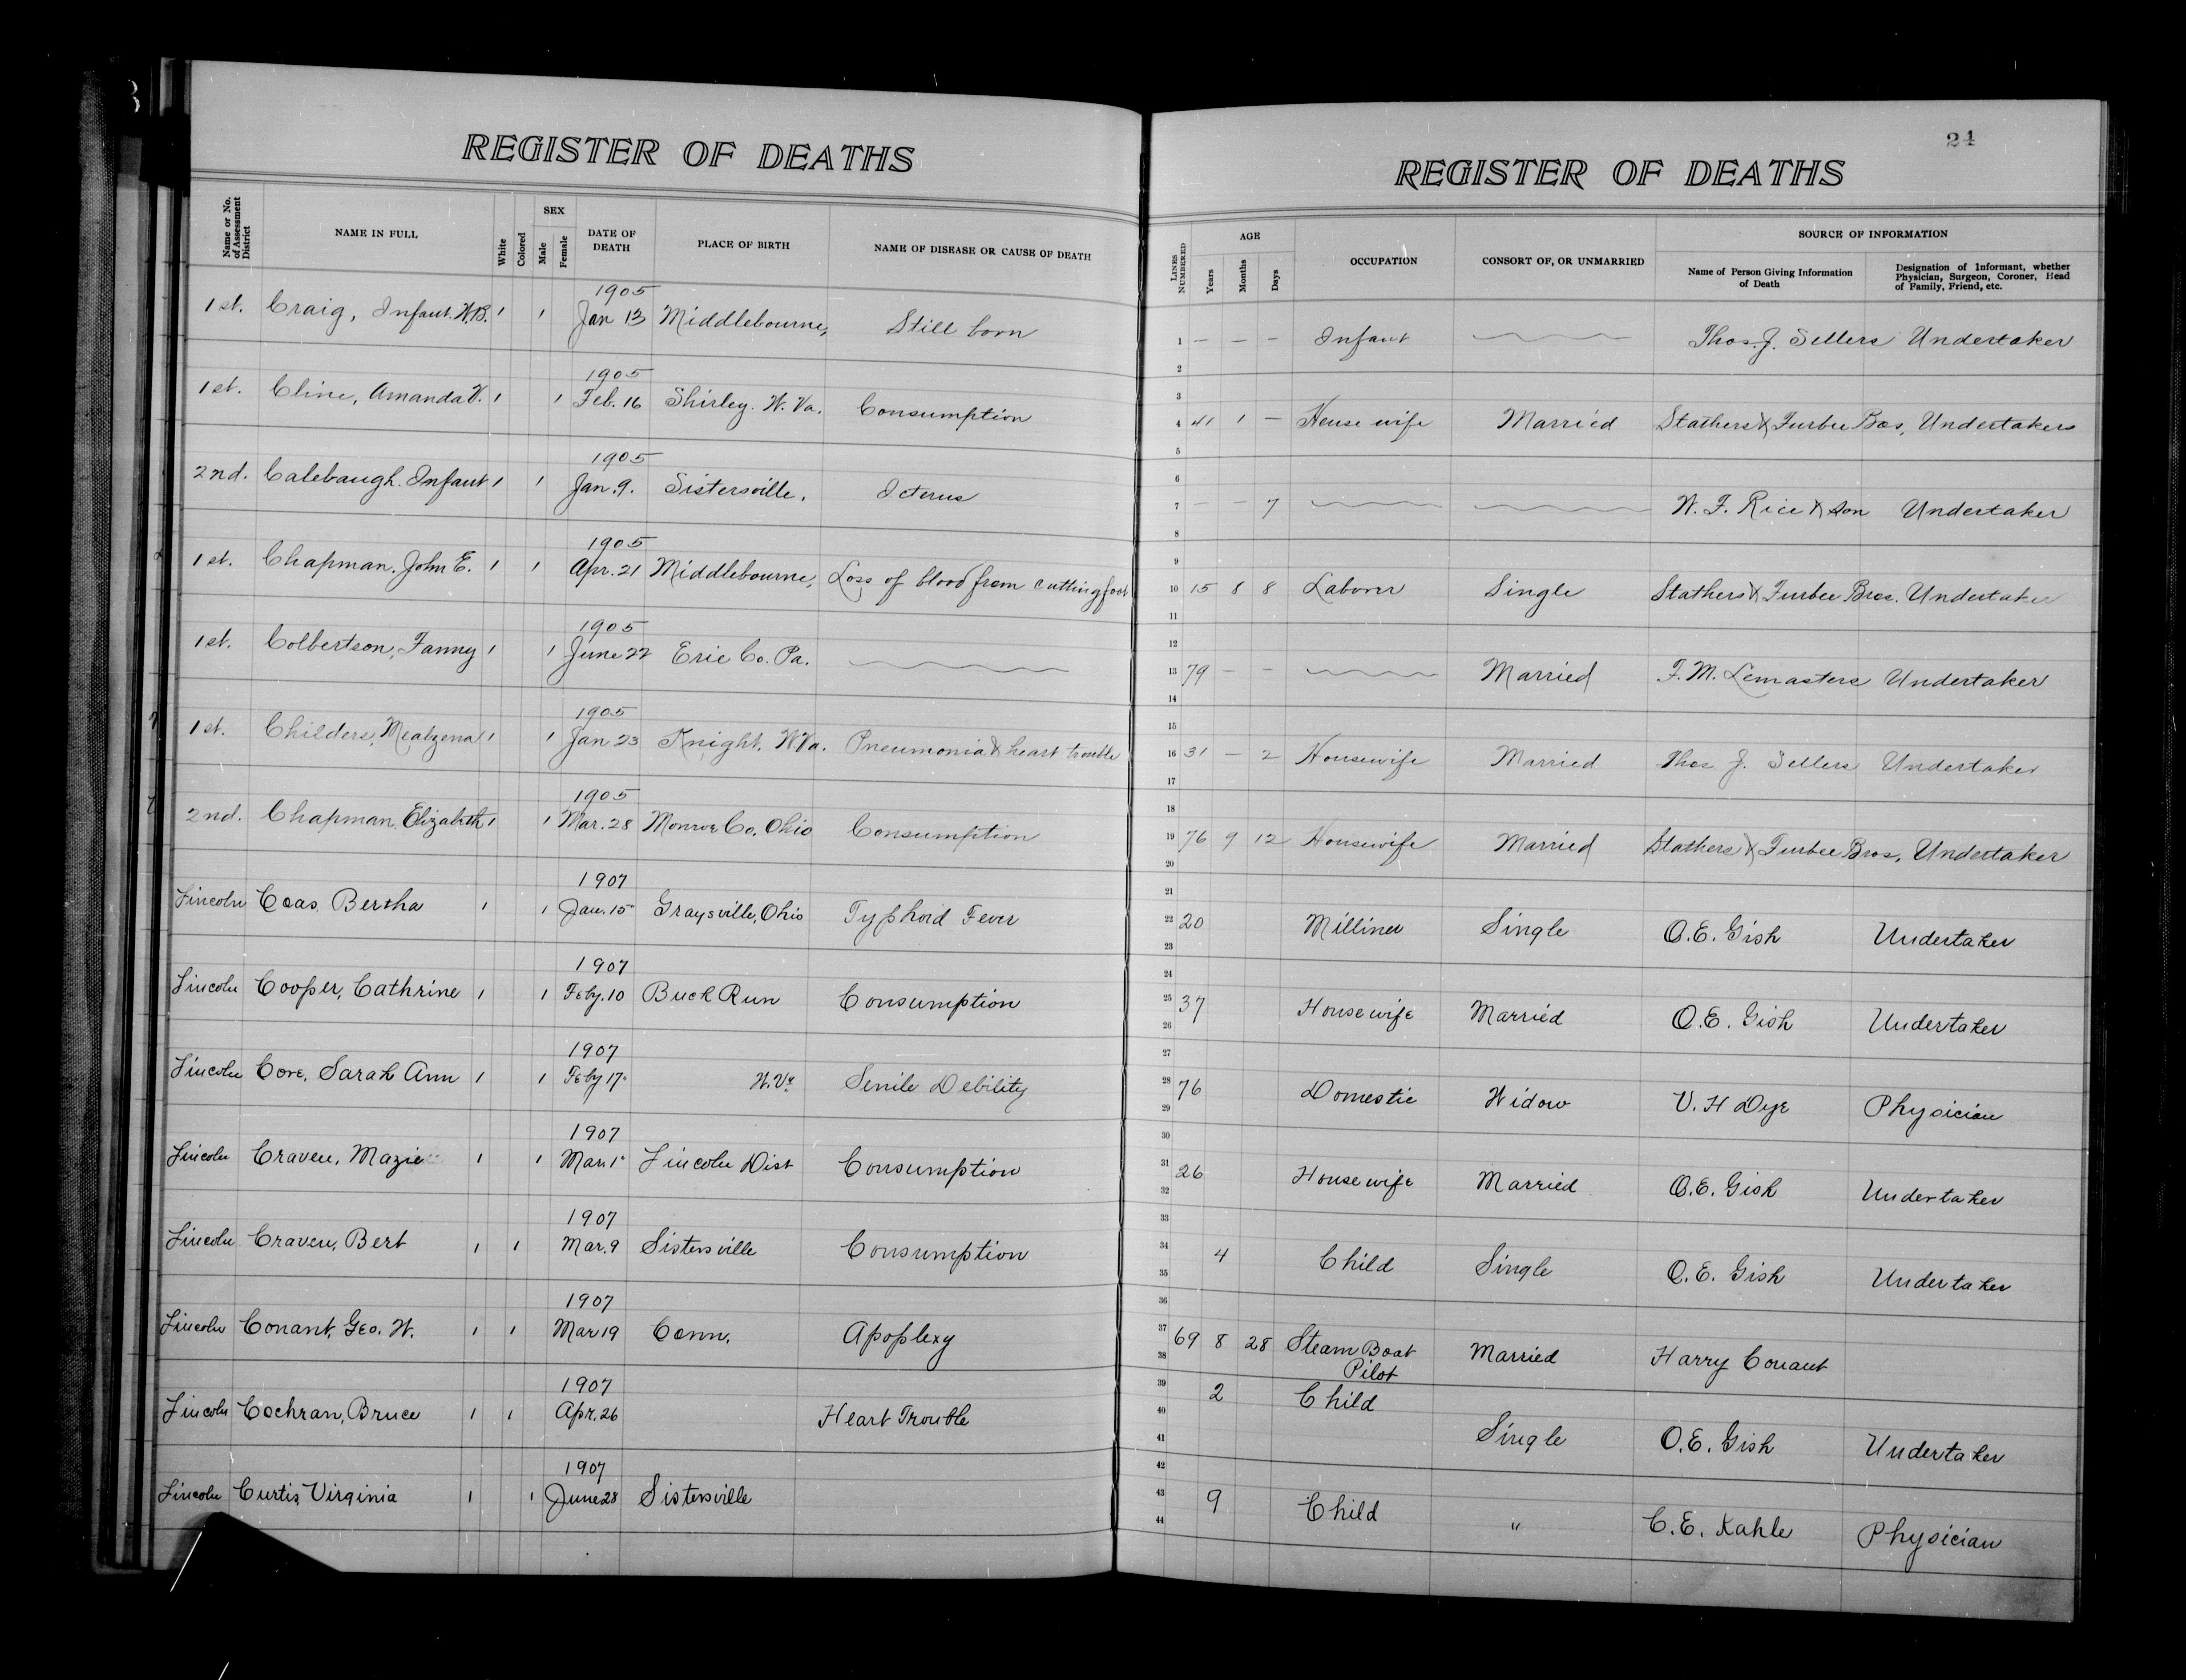 REGISTER OF DEATHS
Name or No. of Assessment District
NAME IN FULL
White
Colored
SEX
Male
Female
DATE OF DEATH
PLACE OF BIRTH
NAME OF DISEASE OR CAUSE OF DEATH
1905
1st. Craig, Infant. W.B. 1 1 Jan 13 Middlebourne, Still born
1905
1st. Cline, Amanda V. 1 1 Feb. 16 Shirley. W. Va. Consumption
1905
2nd. Calebaugh. Infant 1 1 Jan. 9. Sistersville. Icterus
1905
1st. Chapman, John E. 1 1 Apr. 21 Middlebourne, Loss of blood from cutting foot
1905
1st. Colbertson, Fanny 1 1 June 22 Erie Co. Pa.
1905
1st. Childers, 1 1 Jan 23 Knight. W. Va. Pneumonia & heart trouble
1905
2nd. Chapman, Elizabeth 1 1 Mar. 28 Monroe Co. Ohio Consumption
1907
Lincoln Coas Bertha 1 1 Jan. 15 Graysville, Ohio Typhoid Fever
1907
Lincoln Cooper, Cathrine 1 1 Feby. 10 Buck Run Consumption
1907
Lincoln Core, Sarah Ann 1 1 Feby 17 W. Va. Senile Debility
1907
Lincoln Craven, Mazie 1 1 Mar. 1 Lincoln Dist Consumption
1907
Lincoln Craven, Bert 1 1 Mar. 9 Sistersville Consumption
1907
Lincoln Conant, Geo. W. 1 1 Mar 19 Conn. Apoplexy
1907
Lincoln Cochran, Bruce 1 1 Apr. 26 Heart Trouble
1907
Lincoln Curtis, Virginia 1 1 June 28 Sistersville
24
REGISTER OF DEATHS
LINES NUMBERED
AGE
Years
Months
Days
OCCUPATION
CONSORT OF, OR UNMARRIED
SOURCE OF INFORMATION
Name of Person Giving Information of Death
Designation of Informant, whether Physician, Surgeon, Coroner, Head of Family, Friend, etc.
1 — — — Infant Thos. J. Sellers Undertaker
2
3
4 41 1 — House wife Married Stathers & Furbee Bos, Undertakers
5
6
7 — — 7 W. F. Rice & Son Undertaker
8
9
10 15 8 8 Laborer Single Stathers & Furbee Bros. Undertaker
11
12
13 79 — — Married F. M. Lemasters Undertaker
14
15
16 31 — 2 Housewife Married Thos J. Sellers Undertaker
17
18
19 76 9 12 Housewife Married Stathers & Furbee Bros, Undertaker
20
21
22 20 Milliner Single O. E. Gish Undertaker
23
24
25 37 House wife Married O. E. Gish Undertaker
26
27
28 76 Domestic Widow V. H Dye Physician
29
30
31 26 House wife Married O. E. Gish Undertaker
32
33
34 4 Child Single O. E. Gish Undertaker
35
36
37 69 8 28 Steam Boat Married Harry Conant
38 Pilot
39 2 Child
40
41 Single O. E. Gish Undertaker
42
43 9 Child " C. E. Kahle Physician
44